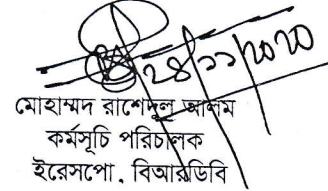 ২৪/১১/২০২০
মোহাম্মদ রাশেদুল আলম
কর্মসূচি পরিচালক
ইরেসপো, বিআরডিবি